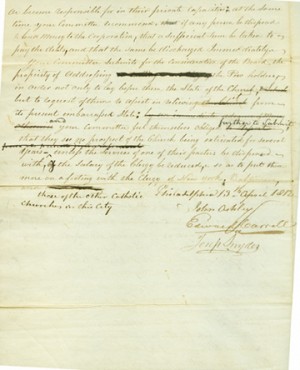 or become responsible for in their private capacities; at the same
time, your Committee recommend, if any person be disposed
to Loan Money to the Corporation, that a sufficient sum be taken to
pay the debts, and that the same be discharged
Your Committee Submits for the Consideration of the Board, the
propriety of addressing the Pew holders,
in order not only to lay before them, the State of the Church,
but to request of them to assist in relieving it from
its present embarrassed State;
and your Committee feel themselves obliged further to Submit
that they see no prospect of the Church being extricated for several
Years, except the Services of one of their pastors be dispensed
with, the Salary of the Clergy be reduced, so as to put them
more on a footing with the Clergy of New York,
those of the other Catholic
Churches in this City
Philadelphia 13th April 1812
John Ashley
Edward Carrell
Jos. Snyder